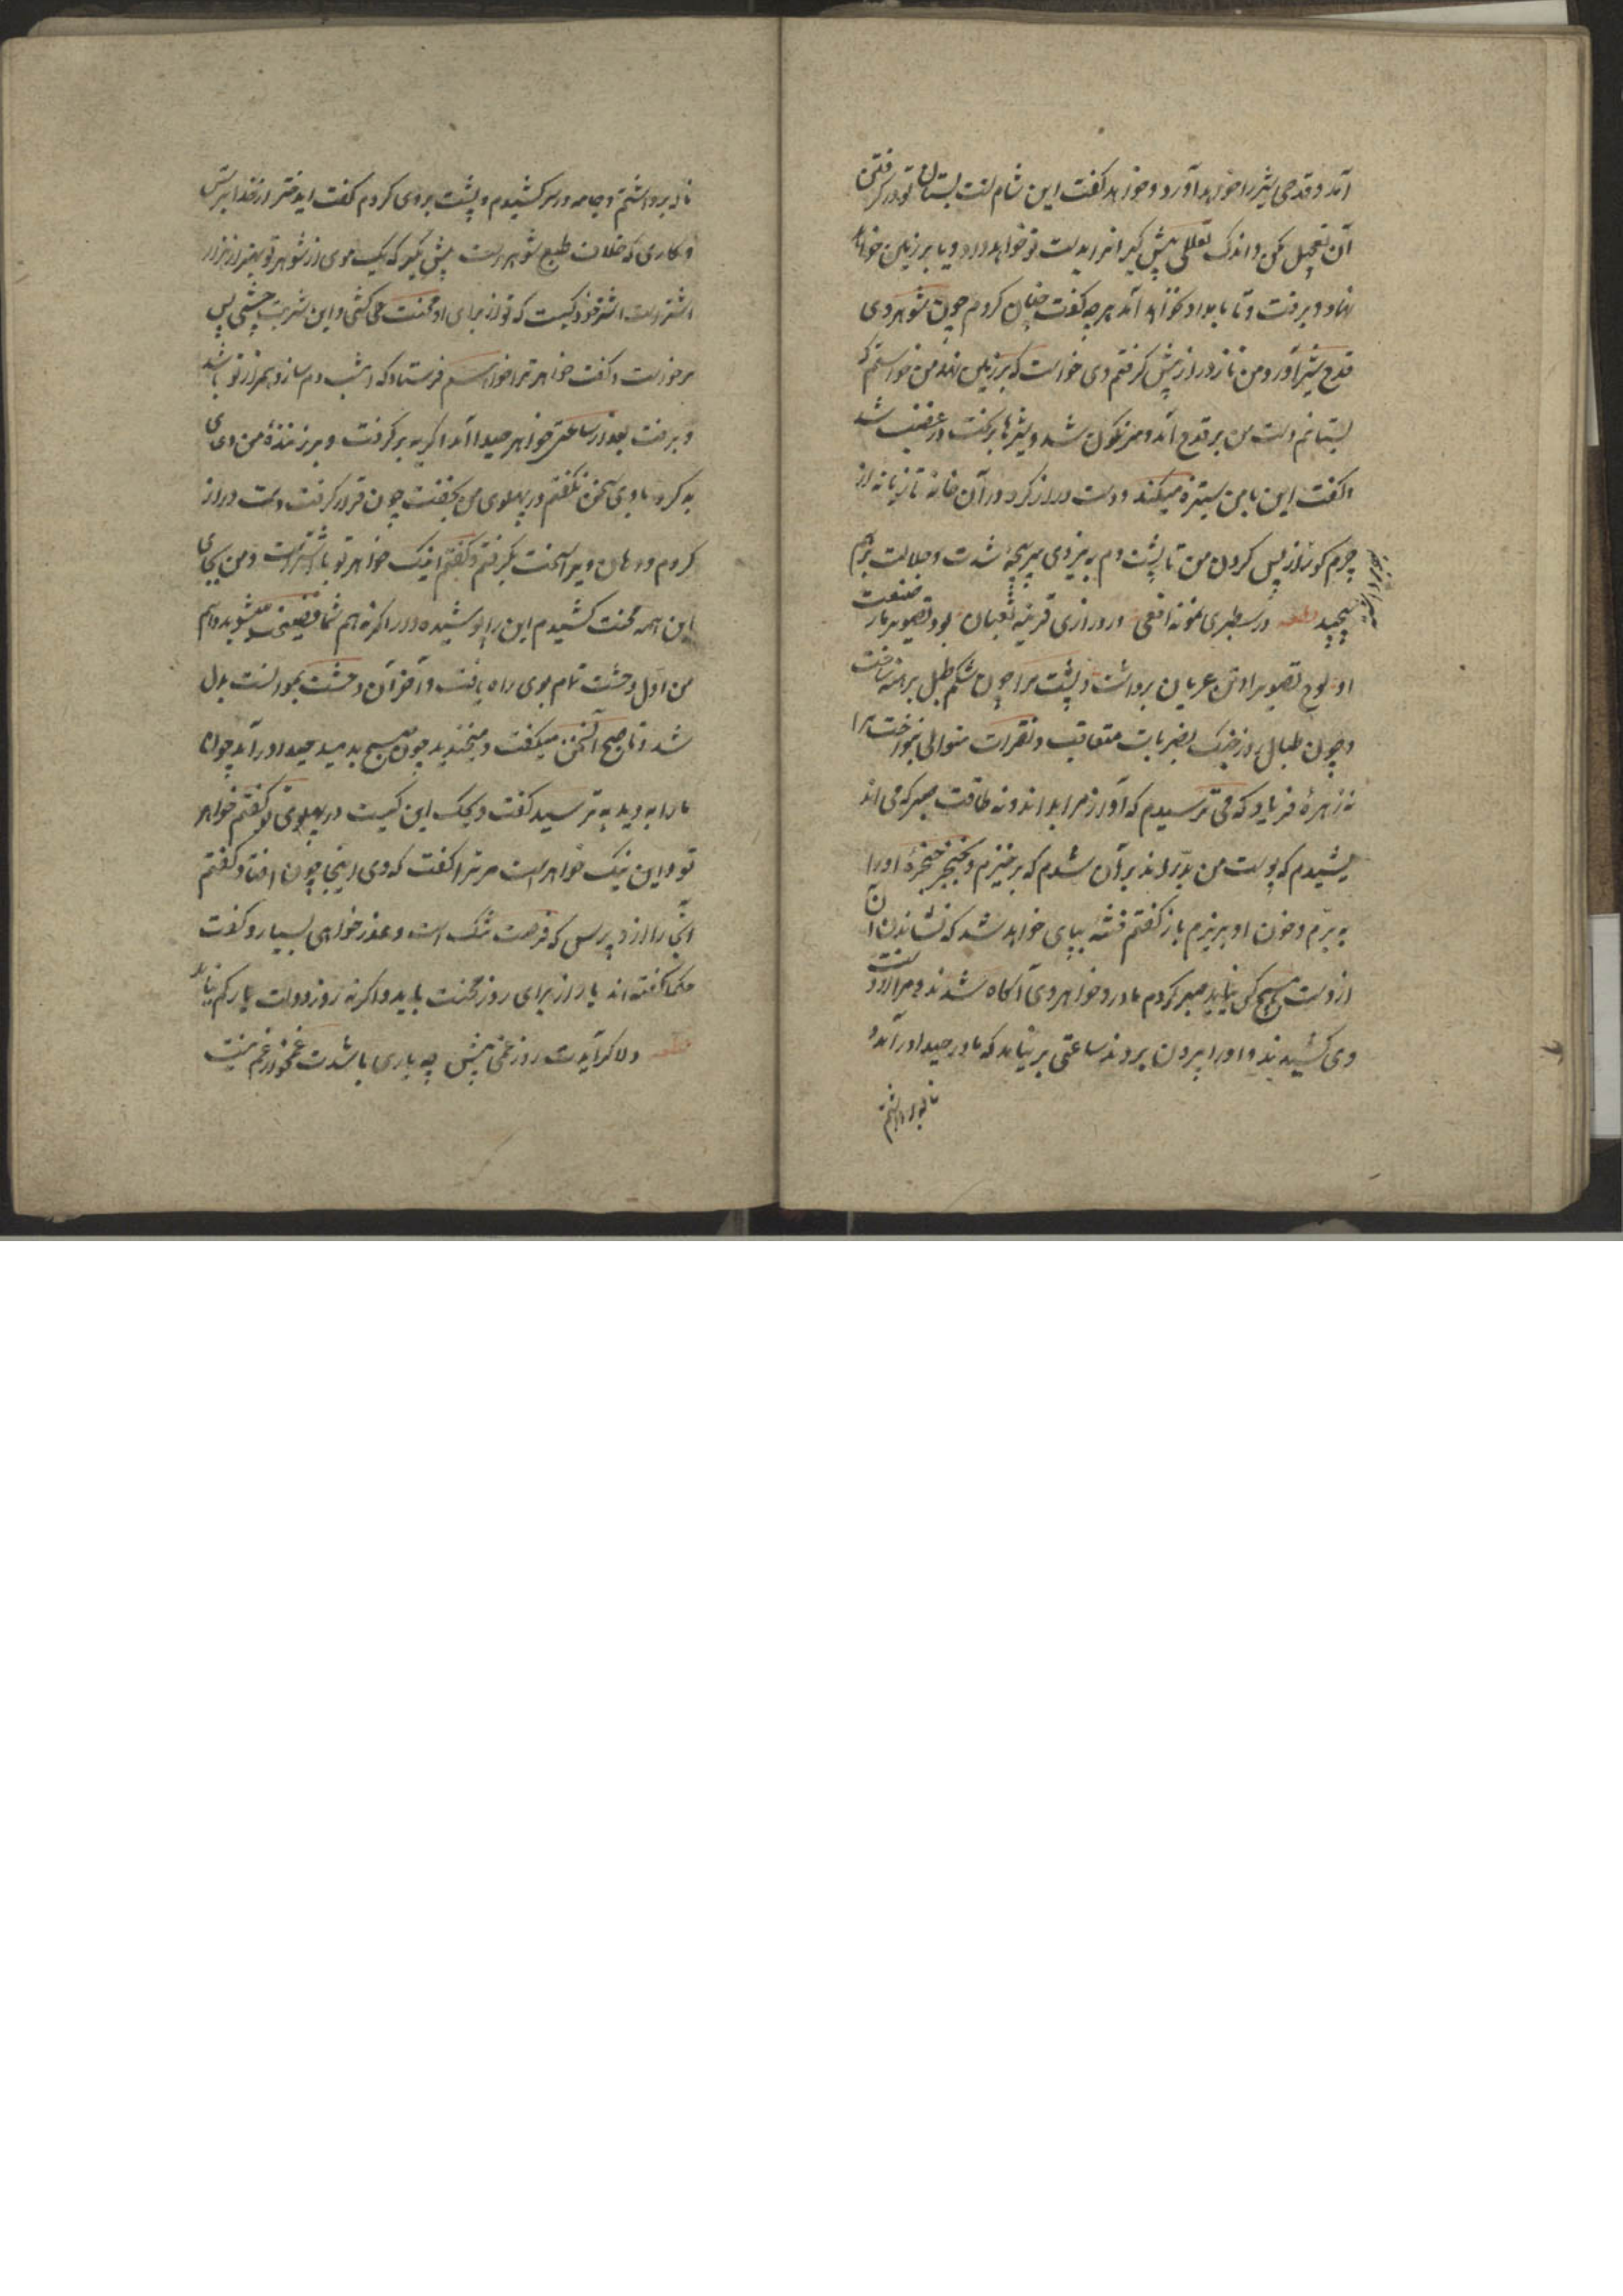 آمد و قدحی شیر را خواهد آورد و خواهد گفت این شام تست بستان تو در گرفتن
آن تعجیل مکن و اندک تعللی پیش گیر آنرا بدست تو خواهد داد و یا بر زمین خواهد
نهاد و برفت و تا بامداد نخواهد آمد هر چه گفت چنان کردم چون شوهر وی
قدح شیر آورد من ناز دراز پیش گرفتم وی خواست که بر زمین نهد من خواستم که
بستانم دست من بر قدح آمد و سرنگون شد و شیرها بریخت در غضب شد
و گفت این با من ستیزه میکند و دست دراز کرد و در آن خانه تازیانه از
چرم گوزن از پس گردن من تا پشت دم به نیروی سرپنجه شدت و جلادت بر هم
پیچید قطعه در سطبری نمونه افعی در درازی قرینه ثعبان بود تصویر مار صنعت
او لوح تصویر او تن عریان برداشت و پشت مرا چون شکم طبل برهنه ساخت
و چون طبال روز جنگ بضربات متعاقب و نقرات متوالی بنواخت مرا
نه زهره فریاد که می ترسیدم که آواز مرا بداند و نه طاقت صبر که می اند
یشیدم که پوست من بدراند بر آن شدم که برخیزم و بخنجر حنجره او را
ببرم و خون او بریزم باز گفتم فتنه بپای خواهد شد که نشاندن آن
از دست هیچ کس نیاید صبر کردم مادر و خواهر وی آگاه شدند و مرا از دست
وی کشیدند و او را بیرون بردند ساعتی بر نیامد که مادر جیدا در آمد و
ناله برداشتم
ناله برداشتم و جامه در سر کشیدم و پشت بر وی کردم گفت ای دختر از خدا بترس
و کاری که خلاف طبع شوهرست پیش مگیر که یک موی از شوهر تو بهتر از هزار
اشترست اشتر خود کیست که تو از برای او محنت می کشی و این شربت چشی پس
برخواست و گفت خواهر ترا خواهم فرستاد که امشب دم ساز و همراز تو باشد
و برفت بعد از ساعتی خواهر جیدا آمد و گریه بر گرفت و بر زننده من دعای
بد کرد با وی سخن نگفتم در پهلوی من بخفت چون قرار گرفت دست دراز
کردم و دهان ویرا سخت بگرفتم و گفتم اینک خواهر تو با اشترست و من بجای
این همه محنت کشیدم این را پوشیده دار و اگر نه هم شما فضیحت میشوید و هم
من اول وحشت تمام بوی راه یافت و آخر آن وحشت بموانست بدل
شد و تا صبح آن سخن میگفت و میخندید چون صبح بدمید جیدا در آمد چون
ما را بدید بترسید گفت ویحک این کیست در پهلوی تو گفتم خواهر
تو و این نیک خواهرست مر ترا گفت که وی اینجا چون افتاد گفتم
این را از وی پرس که فرصت تنگ است و عذر خواهی بسیار و گفت
حکما گفته اند یار از برای روز محنت باید و اگر نه روز دولت یار کم نیاید
قطعه دلا گر آیدت روز غمی پیش چه یاری باشدت غمخوار غم نیست